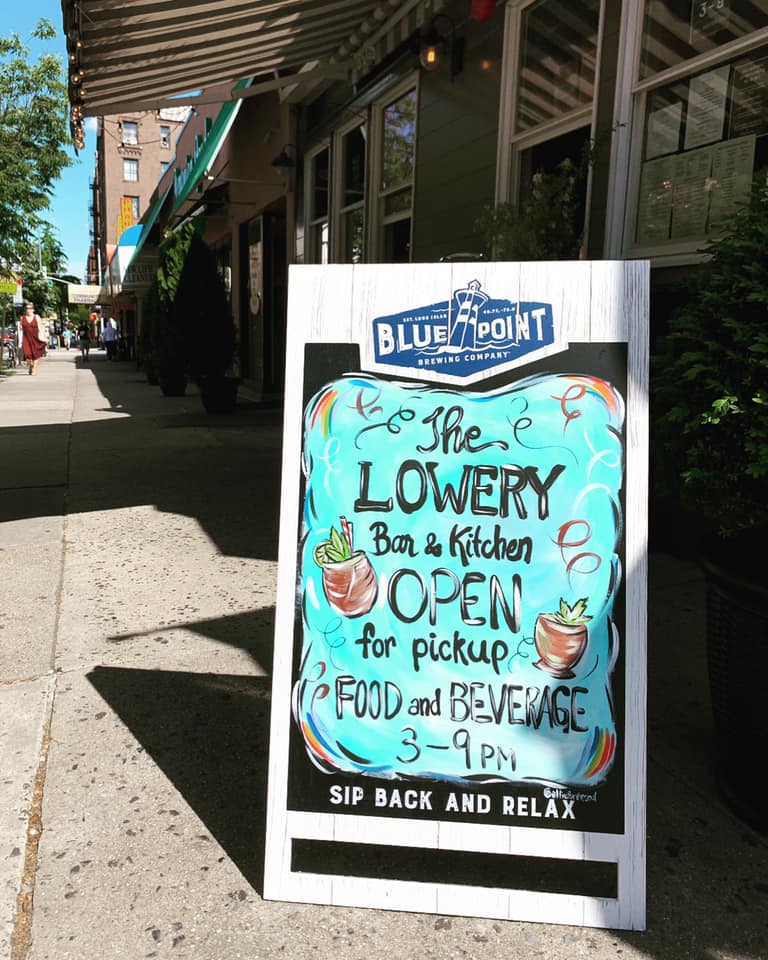 EST. LONG ISLAND 40.77,-73.0
BLUE POINT
BREWING COMPANY
The
LOWERY
Bar & Kitchen
OPEN
for pickup
FOOD and BEVERAGE
3-9 PM
SIP BACK AND RELAX
3-9